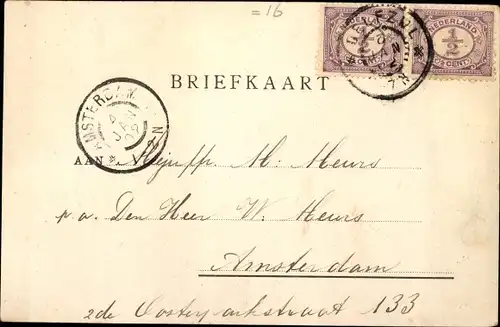 =16
NEDERLAND
1/2
(½ CENT)
NEDERLAND
1/2
(½ CENT)
BRIEFKAART
AMSTERDAM
4
JAN
AAN Mejuffr. M. Meurs
p.a. Den Heer W. Meurs
Amsterdam
2de Oosterparkstraat 133